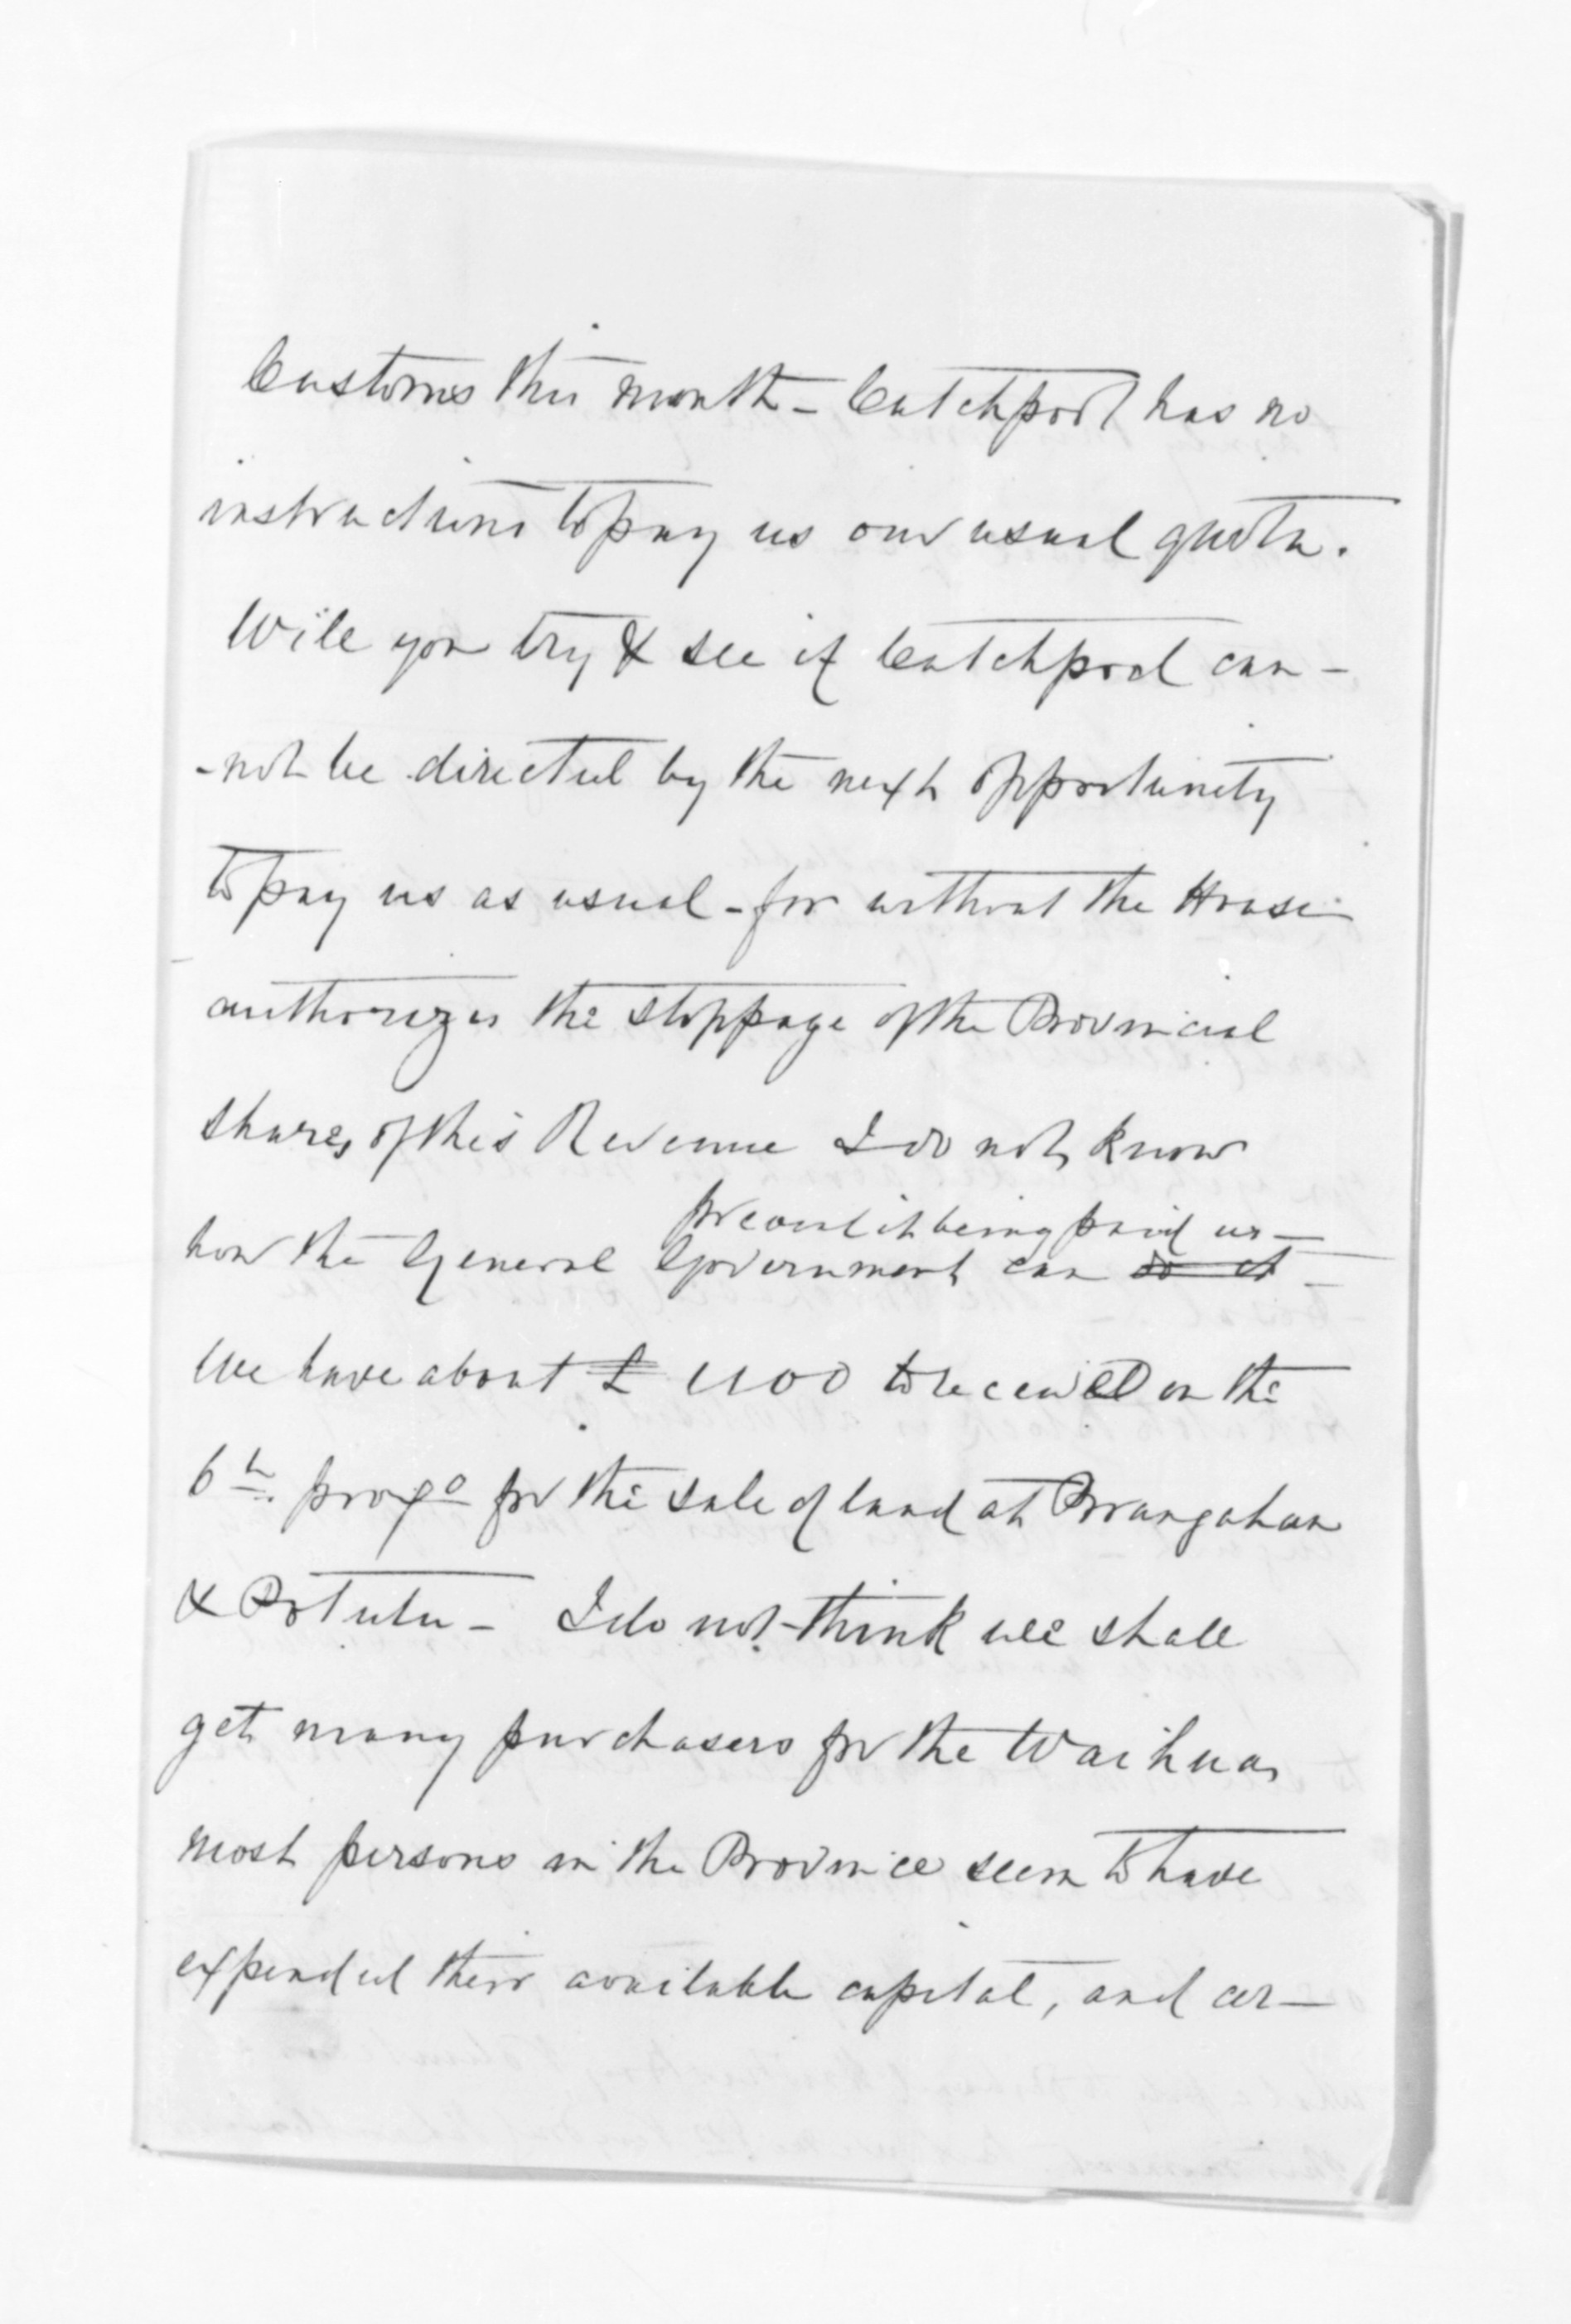 Customs this month - Catchpool has no
instructions to pay us our usual quota.
Will you try & see if Catchpool can-
-not be directed by the next opportunity
to pay us as usual - for without the House
authorizes the stoppage of the Provincial
shares of this Revenue I do not know
prevent it being paid us -
how the General Government can do it -
We have about £ 1100 to receive on the
6th. proxo for the sale of land at Porangahau
& Potutu - I do not think we shall
get many purchasers for the Waihua,
most persons in the Province seem to have
expended their available capital, and are -